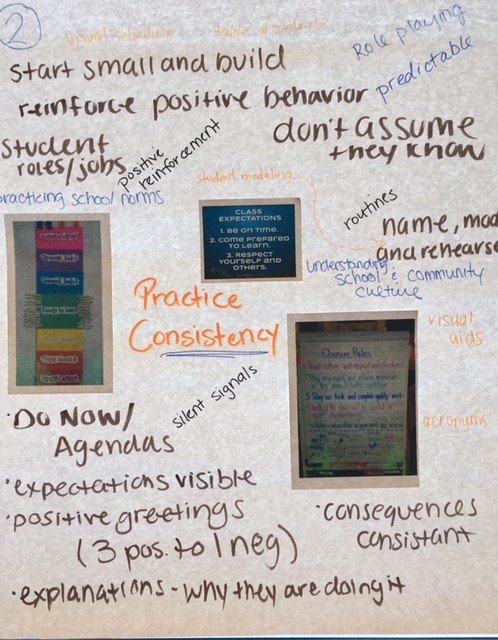 2
visual schedule table of contents
Role playing
start small and build
predictable
reinforce positive behavior
don't assume
they know
student
roles/jobs
positive
reinforcement
student modeling
practicing school norms
routines
CLASS
EXPECTATIONS
1. BE ON TIME.
2. COME PREPARED
TO LEARN.
3. RESPECT
YOURSELF AND
OTHERS.
name, mod
and rehearse
understanding
school & community
culture
Outstanding!
Great Job!
Good Job!
Ready to learn
Think about it
Parent Contact
Practice
Consistency
visual
aids
Classroom Rules
acronyms
silent signals
·Do Now/
Agendas
·expectations visible
·positive greetings
(3 pos. to 1 neg)
·consequences
consistant
·explanations - why they are doing it